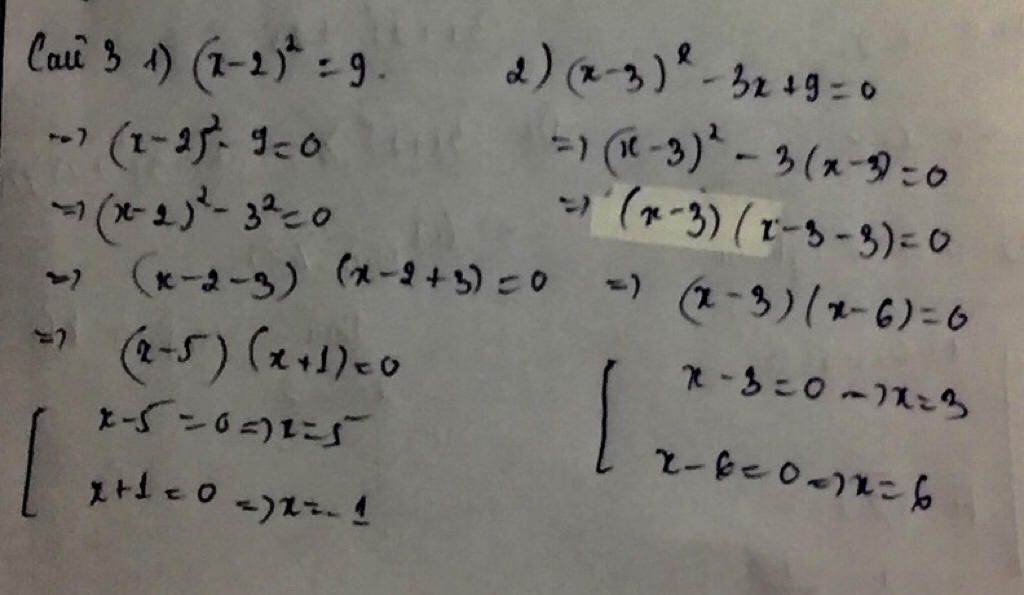 Câu 3 1) (x-2)² = 9.
=> (x-2)² - 9 = 0
=> (x-2)² - 3² = 0
=> (x-2-3) (x-2+3) = 0
=> (x-5) (x+1) = 0
[ x-5 = 0 => x = 5
x+1 = 0 => x = -1
2) (x-3)² - 3x + 9 = 0
=> (x-3)² - 3(x-3) = 0
=> (x-3) (x-3-3) = 0
=> (x-3) (x-6) = 0
[ x-3 = 0 => x = 3
x-6 = 0 => x = 6